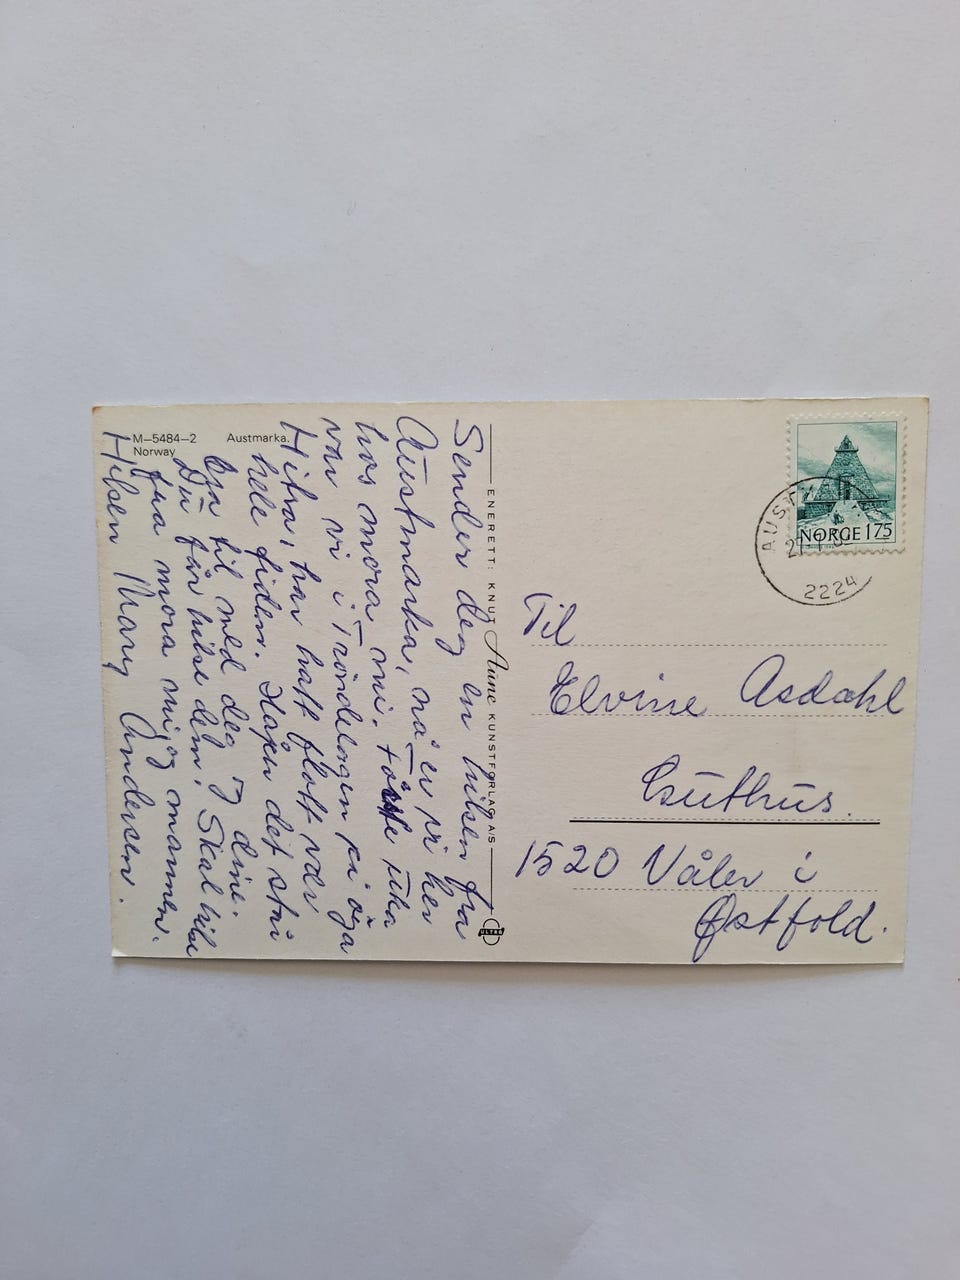 M—5484—2 Austmarka.
Norway
Sender deg en hilsen fra
Austmarka, nå er vi her
hos mora mi. Første uka
var vi i Trøndelagen på øya
Hitra, har hatt flott vær
hele tiden. Håper det står
bra til med deg og dine.
Du får hilse dem. Skal hilse
fra mora mi og mannen.
Hilsen Mary Andersen.
ENERETT: KNUT Aune KUNSTFORLAG A/S
ULTRA
NORGE 175
AUST
2224
Til
Elvine Asdahl
Guthus.
1520 Våler i
Østfold.